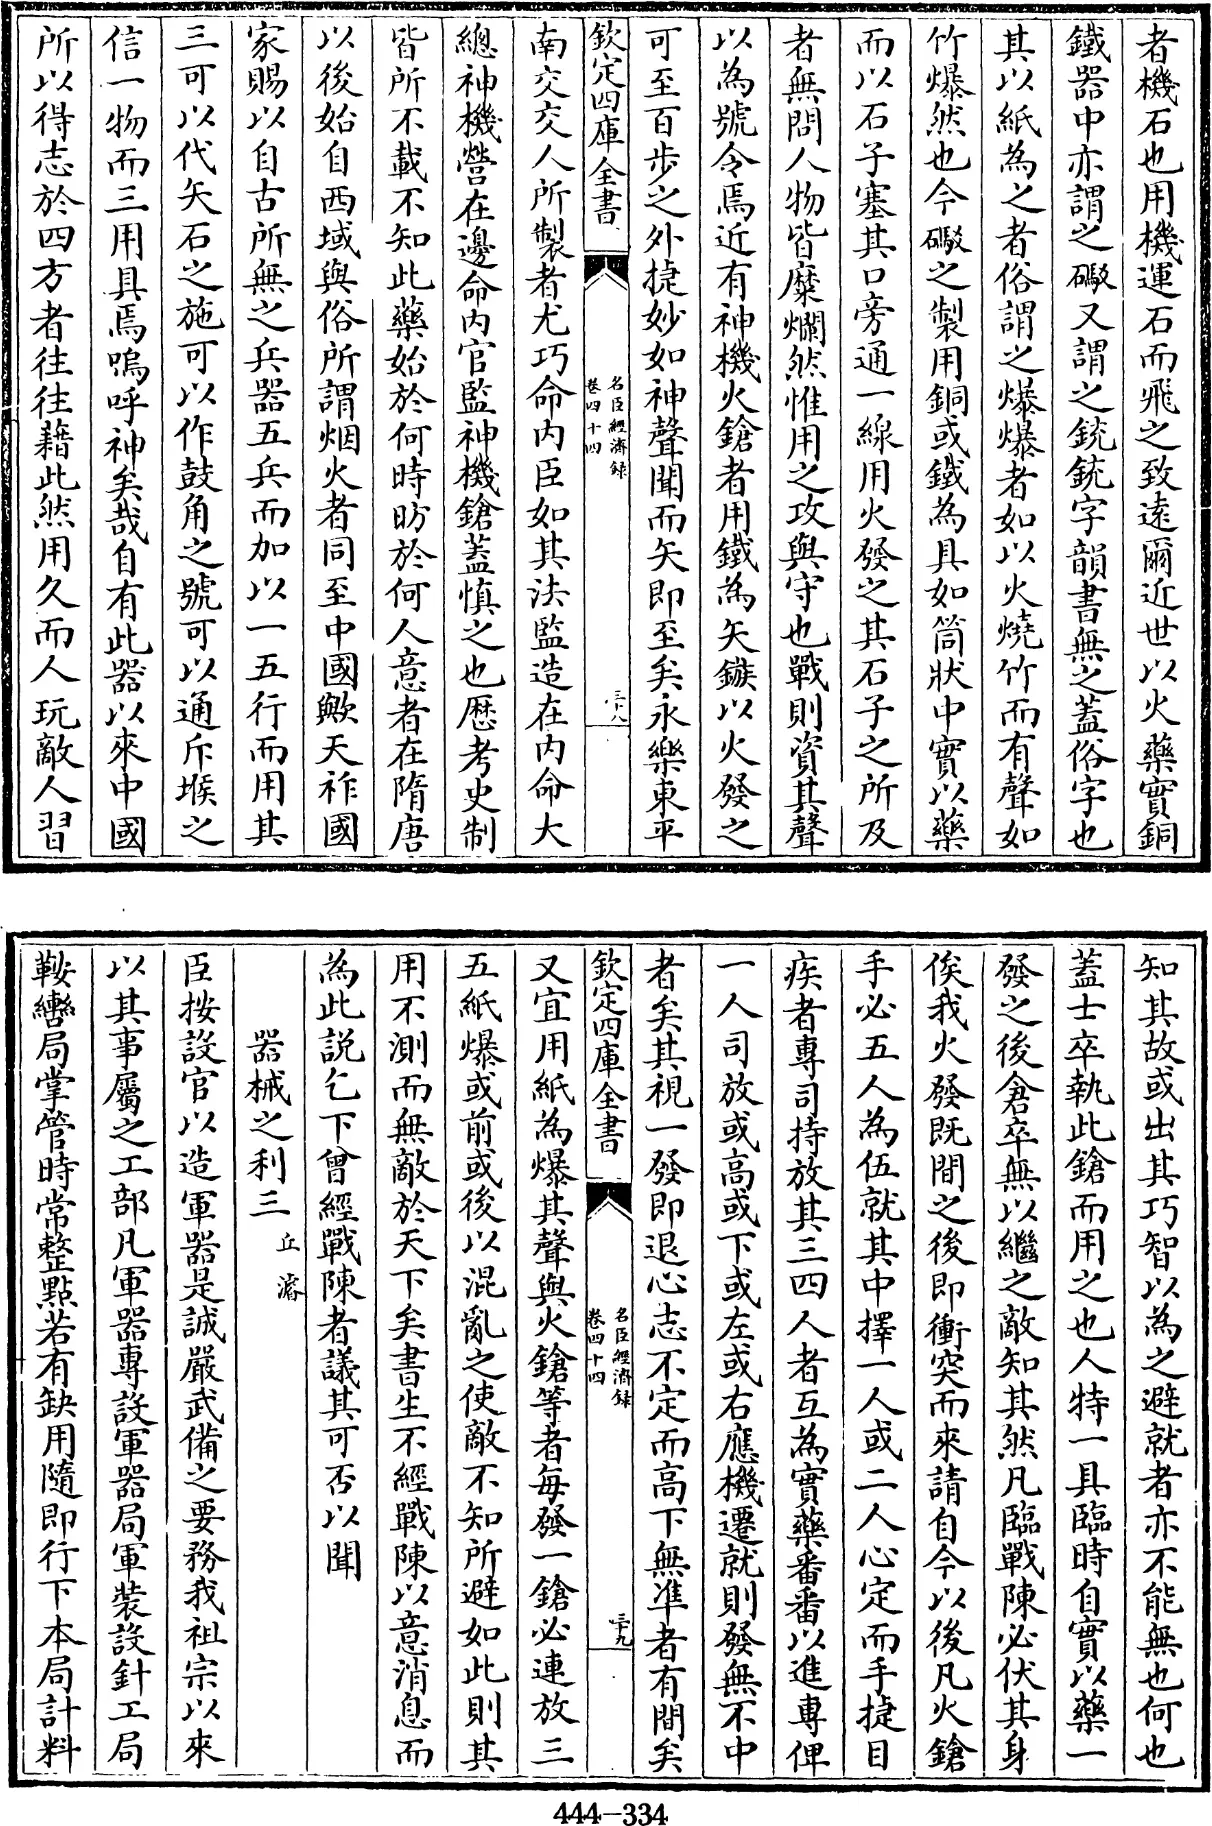 者機石也用機運石而飛之致遠爾近世以火藥實銅
鐵器中亦謂之礮又謂之銃銃字韻書無之蓋俗字也
其以紙為之者俗謂之爆爆者如以火燒竹而有聲如
竹爆然也今礮之製用銅或鐵為具如筒狀中實以藥
而以石子塞其口旁通一線用火發之其石子之所及
者無問人物皆糜爛然惟用之攻與守也戰則資其聲
以為號令焉近有神機火鎗者用鐵為矢鏃以火發之
可至百步之外捷妙如神聲聞而矢即至矣永樂東平
欽定四庫全書
名臣經濟録
卷四十四
三十八
南交交人所製者尤巧命内臣如其法監造在内命大
總神機營在邊命内官監神機鎗蓋慎之也歴考史制
皆所不載不知此藥始於何時昉於何人意者在隋唐
以後始自西域與俗所謂烟火者同至中國歟天祚國
家賜以自古所無之兵器五兵而加以一五行而用其
三可以代矢石之施可以作鼓角之號可以通斥堠之
信一物而三用具焉嗚呼神矣哉自有此器以來中國
所以得志於四方者往往藉此然用久而人玩敵人習
知其故或出其巧智以為之避就者亦不能無也何也
蓋士卒執此鎗而用之也人特一具臨時自實以藥一
發之後倉卒無以繼之敵知其然凡臨戰陳必伏其身
俟我火發既間之後即衝突而來請自今以後凡火鎗
手必五人為伍就其中擇一人或二人心定而手捷目
疾者專司持放其三四人者互為實藥番番以進專俾
一人司放或高或下或左或右應機遷就則發無不中
者矣其視一發即退心志不定而高下無準者有間矣
欽定四庫全書
名臣經濟録
卷四十四
三十九
又宜用紙為爆其聲與火鎗等者每發一鎗必連放三
五紙爆或前或後以混亂之使敵不知所避如此則其
用不測而無敵於天下矣書生不經戰陳以意消息而
為此説乞下曾經戰陳者議其可否以聞
器械之利三 丘濬
臣按設官以造軍器是誠嚴武備之要務我祖宗以來
以其事屬之工部凡軍器專設軍器局軍裝設針工局
鞍轡局掌管時常整點若有缺用隨即行下本局計料
444-334